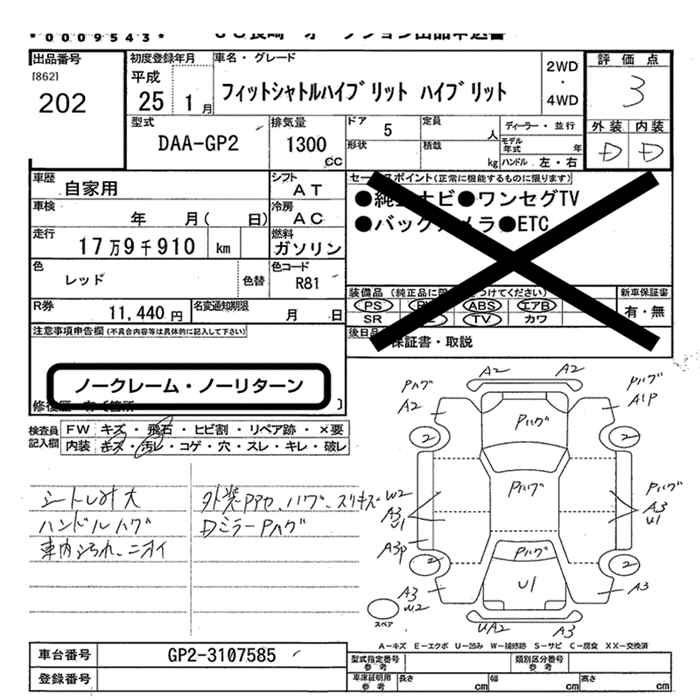 *0009543*
出品番号
[862]
202
初度登録年月
平成
25 1月
車名・グレード
フィットシャトルハイブリット ハイブリット
2WD
・
4WD
評価点
3
外装 内装
D D
型式
DAA-GP2
排気量
1300
CC
ドア 5
定員 人
ディーラー・並行
形状
積載 kg
モデル年式 年
ハンドル 左・右
車歴
自家用
シフト
AT
車検
年 月( 日)
冷房
AC
走行
17万9千910 km
燃料
ガソリン
色
レッド
色替
色コード
R81
R券
11,440円
名変通知期限
月 日
セールスポイント(正常に機能するものに限ります)
ナビ●ワンセグTV
●ETC
装備品
PS ABS エアB
SR TV カワ
新車保証書
有・無
保証書・取説
注意事項申告欄(不具合内容等は具体的に記入して下さい)
ノークレーム・ノーリターン
検査員記入欄
FW キズ・飛石・ヒビ割・リペア跡・×要
内装 キズ・汚レ・コゲ・穴・スレ・キレ・破レ
シートしみ大
ハンドルハゲ
車内ヨゴレ、ニオイ
外装Pアセ、ハゲ、スリキズ
DミラーPハゲ
A2 A2
Pハゲ
A2
Pハゲ
Pハゲ
A1P
2 2
W2
A3
U1
Pハゲ
Pハゲ
A3
U1
A3P
Pハゲ
2 2
U1
A3
W2
A3
スペア
UA2 A3
A-キズ E-エクボ U-凹み W-補修跡 S-サビ C-腐食 XX-交換済
車台番号
GP2-3107585
登録番号
型式指定番号
参考
類別区分番号
参考
車庫証明用
参考
長さ cm
幅 cm
高さ cm